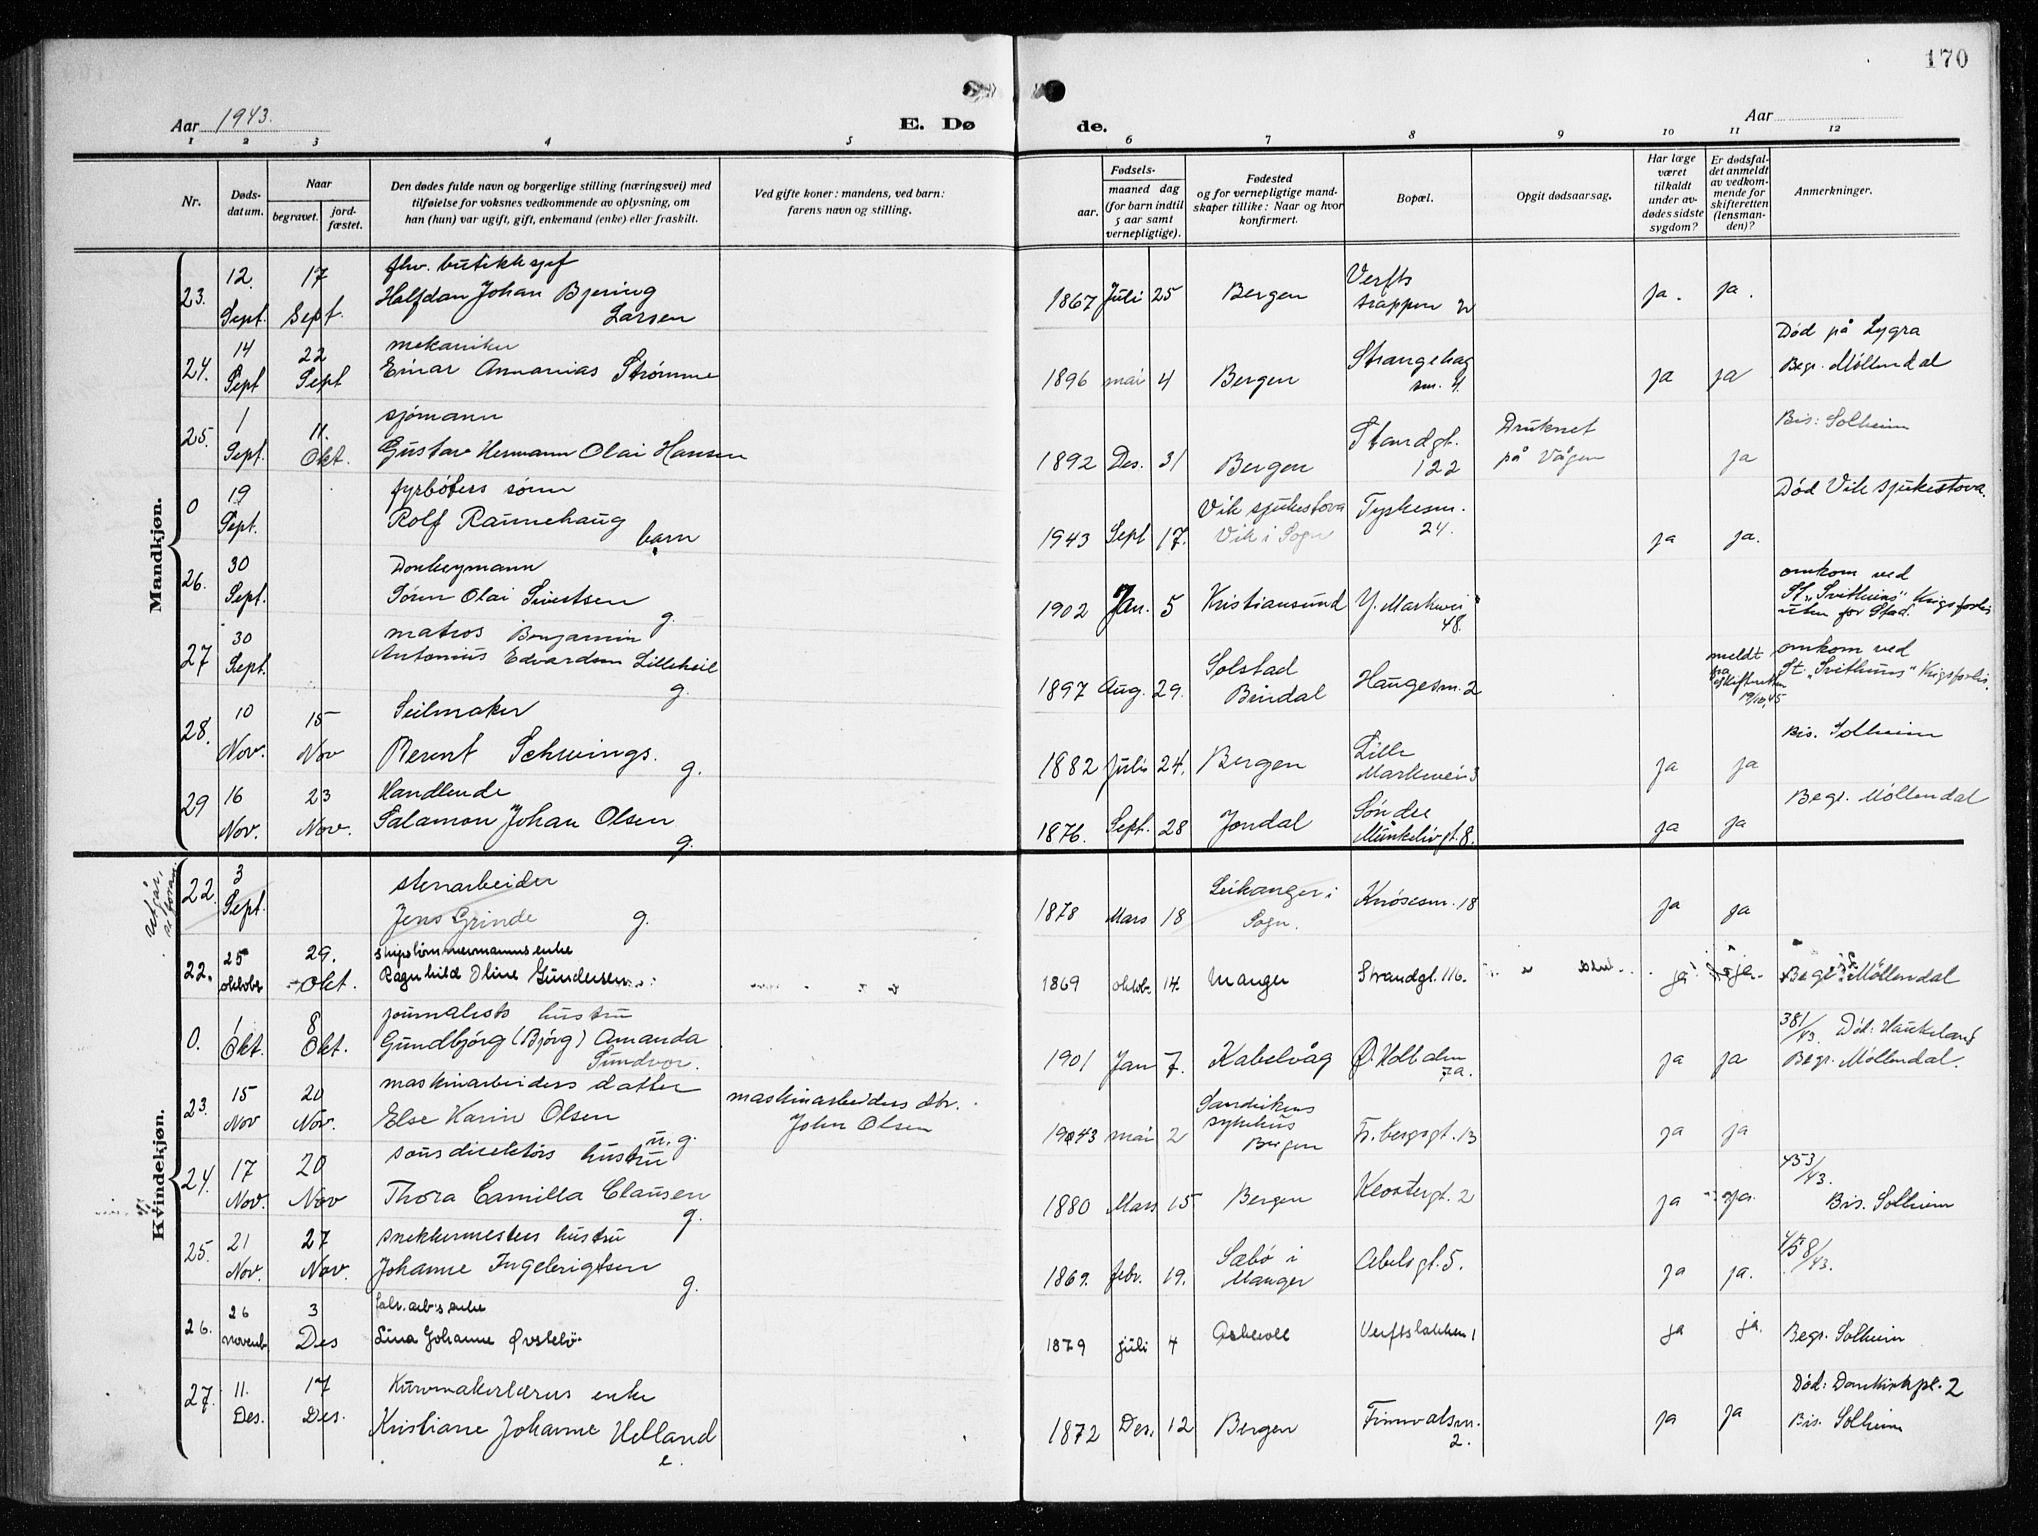 170
Aar 1943.
E. Dø
de.
Aar
1 2 3 4 5 6 7 8 9 10 11 12
Nr.
Døds-
datum.
Naar
begravet.
jord-
fæstet.
Den dødes fulde navn og borgerlige stilling (næringsvei) med
tilføielse for voksnes vedkommende av oplysning, om
han (hun) var ugift, gift, enkemand (enke) eller fraskilt.
Ved gifte koner: mandens, ved barn:
farens navn og stilling.
Fødsels-
aar.
maaned dag
(for barn indtil
5 aar samt
vernepligtige).
Fødested
og for vernepligtige mand-
skaper tillike: Naar og hvor
konfirmert.
Bopæl.
Opgit dødsaarsag.
Har læge
været
tilkaldt
under av-
dødes sidste
sygdom?
Er dødsfal-
det anmeldt
av vedkom-
mende for
skifteretten
(lensman-
den)?
Anmerkninger.
Mandkjøn.
23. 12. Sept. 17 Sept.
fhv. butikksjef
Halfdan Johan Bjering
Larsen
1867 Juli 25 Bergen
Verfts
trappen 2
ja. ja.
24. 14 Sept 22 Sept
mekaniker
Einar Annanias Strømme
1896 mai 4 Bergen
Strangehag
sm. 4.
ja ja
Død på Lygra
Begr. Møllendal
25. 1 Sept. 11. Okt.
sjømann
Gustav Hermann Olai Hansen
1892 Des. 31 Bergen
Strandgt.
122
Druknet
på Vågen
ja
Bis: Solheim
0 19 Sept.
fyrbøters sønn
Rolf Raunehaug
barn
1943 Sept 17.
Vik sjukestova
Vik i Sogn
Tyskesm.
24.
ja ja.
Død Vik sjukestova.
26. 30 Sept.
Donkeymann
Sønn Olai Sivertsen
g.
1902 Jan. 5 Kristiansund
Y. Markvei
48.
omkom ved
St. "Svithuns" Krigsforlis
uten for Stad.
27 30 Sept.
matros Benjamin
Antonius Edvardsen Lilleheil
g.
1897 Aug. 29.
Solstad
Bindal
Haugesm. 2
meldt
fra
skifteretten
19/10,45
omkom ved
St. "Svithuns" Krigsforlis.
28. 10 Nov. 15 Nov
Seilmaker
Berent Schwings.
g.
1882 Juli 24. Bergen
Lille
Markevei 3
ja ja
Bis. Solheim
29 16 Nov. 23 Nov.
Handlende
Salamon Johan Olsen
g.
1876. Sept. 28 Jondal
Søndre
Munkelivgt. 8.
ja ja
Begr. Møllendal
Kvindekjøn.
22. 3 Sept.
stenarbeider
Jens Grinde g.
1878 Mars 18
Leikanger i
Sogn.
Knøsesm. 18
ja ja
22. 25 oktobr 29. Okt.
skipstømmermanns enke
Ragnhild Oline Gundersen
1869 oktob. 14. Manger
Strandgt. 116.
ja ja.
Begr. Møllendal
0. 1 Okt. 8 Okt.
journalists hustru
Gundbjørg (Bjørg) Amanda
Sundvor.
1901 Jan 7. Kabelvåg
Ø. Holbalm
7a.
ja ja
381/43. Død: Haukeland
Begr. Møllendal.
23. 15 Nov 20 Nov.
maskinarbeiders datter
Else Karin Olsen
u. g.
maskinarbeiders dtr.
John Olsen
1943 mai 2
Sandvikens
sykehus
Bergen
Fr. bergsgt. 13
ja ja
24. 17 Nov. 20 Nov
sousdirektørs hustru
Thora Camilla Clausen
g.
1880 Mars 15 Bergen
Klostergt. 2
ja ja.
453/43.
Bis. Solheim
25. 21 Nov. 27 Nov.
snekkermesters hustru
Johanne Ingebrigtsen
g.
1869. febr. 19.
Sæbø i
Manger
Abelsgt. 5.
ja ja.
458/43.
26. 26 novemb 3 Des
fabr. arb's enke
Lina Johanne Øvstebø
1879 juli 4 Askvoll
Verftsbakken 1
ja ja.
Begr. Solheim
27. 11. Des. 17 Des.
Kurvmakerlærers enke
Kristiane Johanne Helland
e.
1872 Des. 12 Bergen
Finnvalsm.
2.
ja ja
Død: Danckirkpl. 2
Bis. Solheim